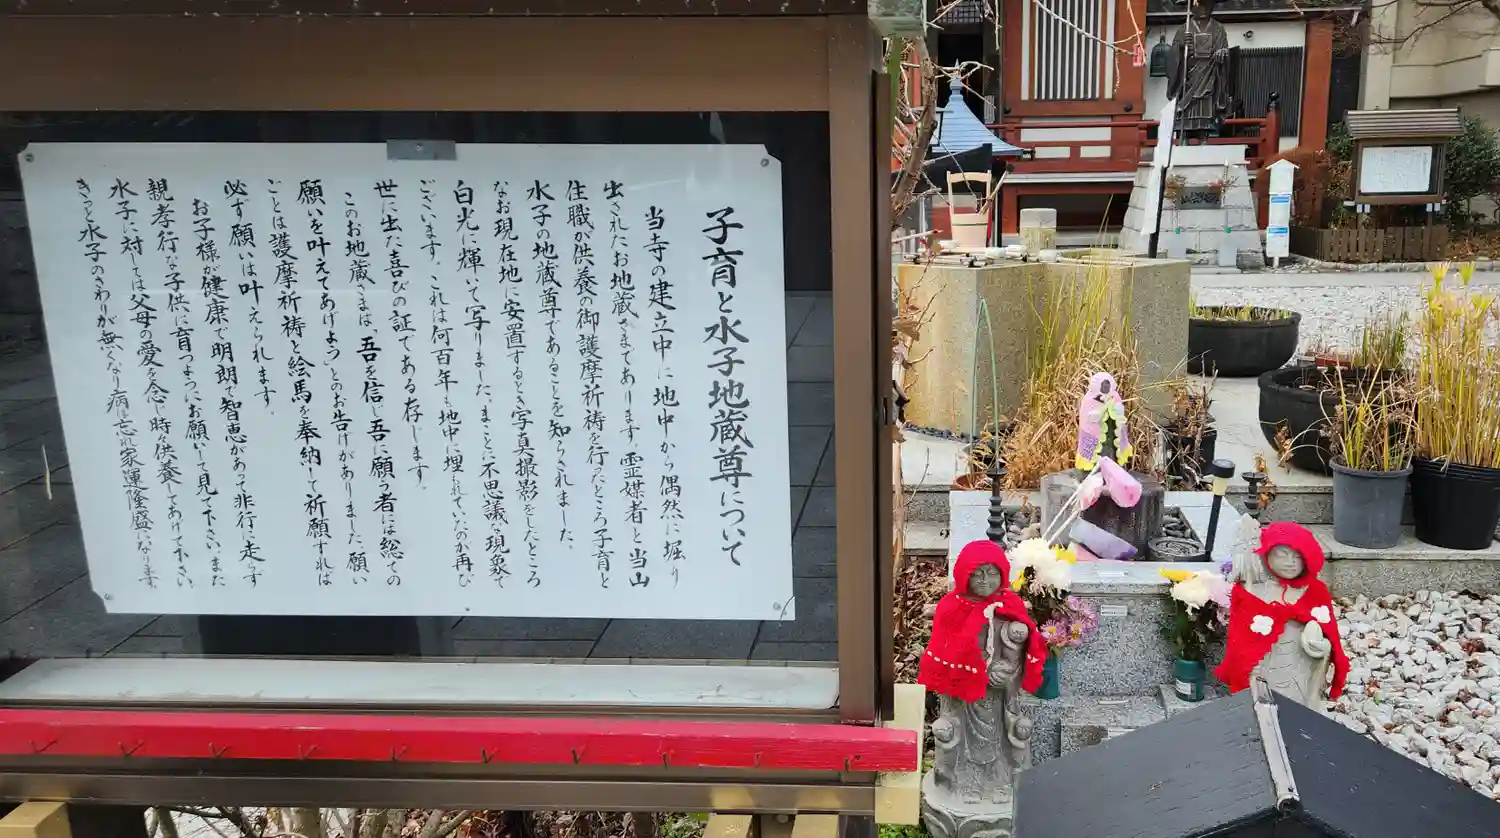 子育と水子地蔵尊について
当寺の建立中に地中から偶然に堀り
出されたお地蔵さまであります。霊媒者と当山
住職が供養の御護摩祈祷を行ったところ子育と
水子の地蔵尊であることを知らされました。
なお現在地に安置するとき写真撮影をしたところ
白光に輝いて写りました。まことに不思議な現象で
ございます。これは何百年も地中に埋れていたのが再び
世に出た喜びの証である存じます。
このお地蔵さまは、吾を信じ吾に願う者には総ての
願いを叶えてあげようとのお告げがありました、願い
ごとは護摩祈祷と絵馬を奉納して祈願すれば
必ず願いは叶えられます。
お子様が健康で明朗で智恵があって非行に走らず
親孝行な子供に育つようにお願いして見て下さい、また
水子に対しては父母の愛を念じ時々供養してあげて下さい、
きっと水子のさわりが無くなり病は忘れ家運隆盛になります。